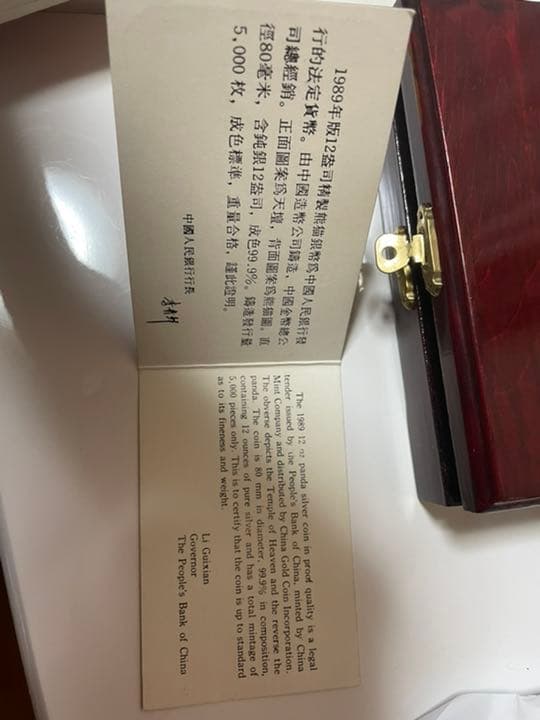 1989年版12盎司精製熊猫銀幣爲中國人民銀行發
行的法定貨幣。由中國造幣公司鑄造，中國金幣總公
司總經銷。正面圖案爲天壇，背面圖案爲熊猫圖。直
徑80毫米，含純銀12盎司，成色99.9%。鑄造發行量
5,000枚，成色標準，重量合格，謹此證明。
中國人民銀行行長
The 1989 12 oz panda silver coin in proof quality is a legal
tender issued by the People's Bank of China, minted by China
Mint Company and distributed by China Gold Coin Incorporation.
The obverse depicts the Temple of Heaven and the reverse the
panda. The coin is 80 mm in diameter, 99.9% in composition,
containing 12 ounces of pure silver and has a total mintage of
5,000 pieces only. This is to certify that the coin is up to standard
as to its fineness and weight.
Li Guixian
Governor
The People's Bank of China